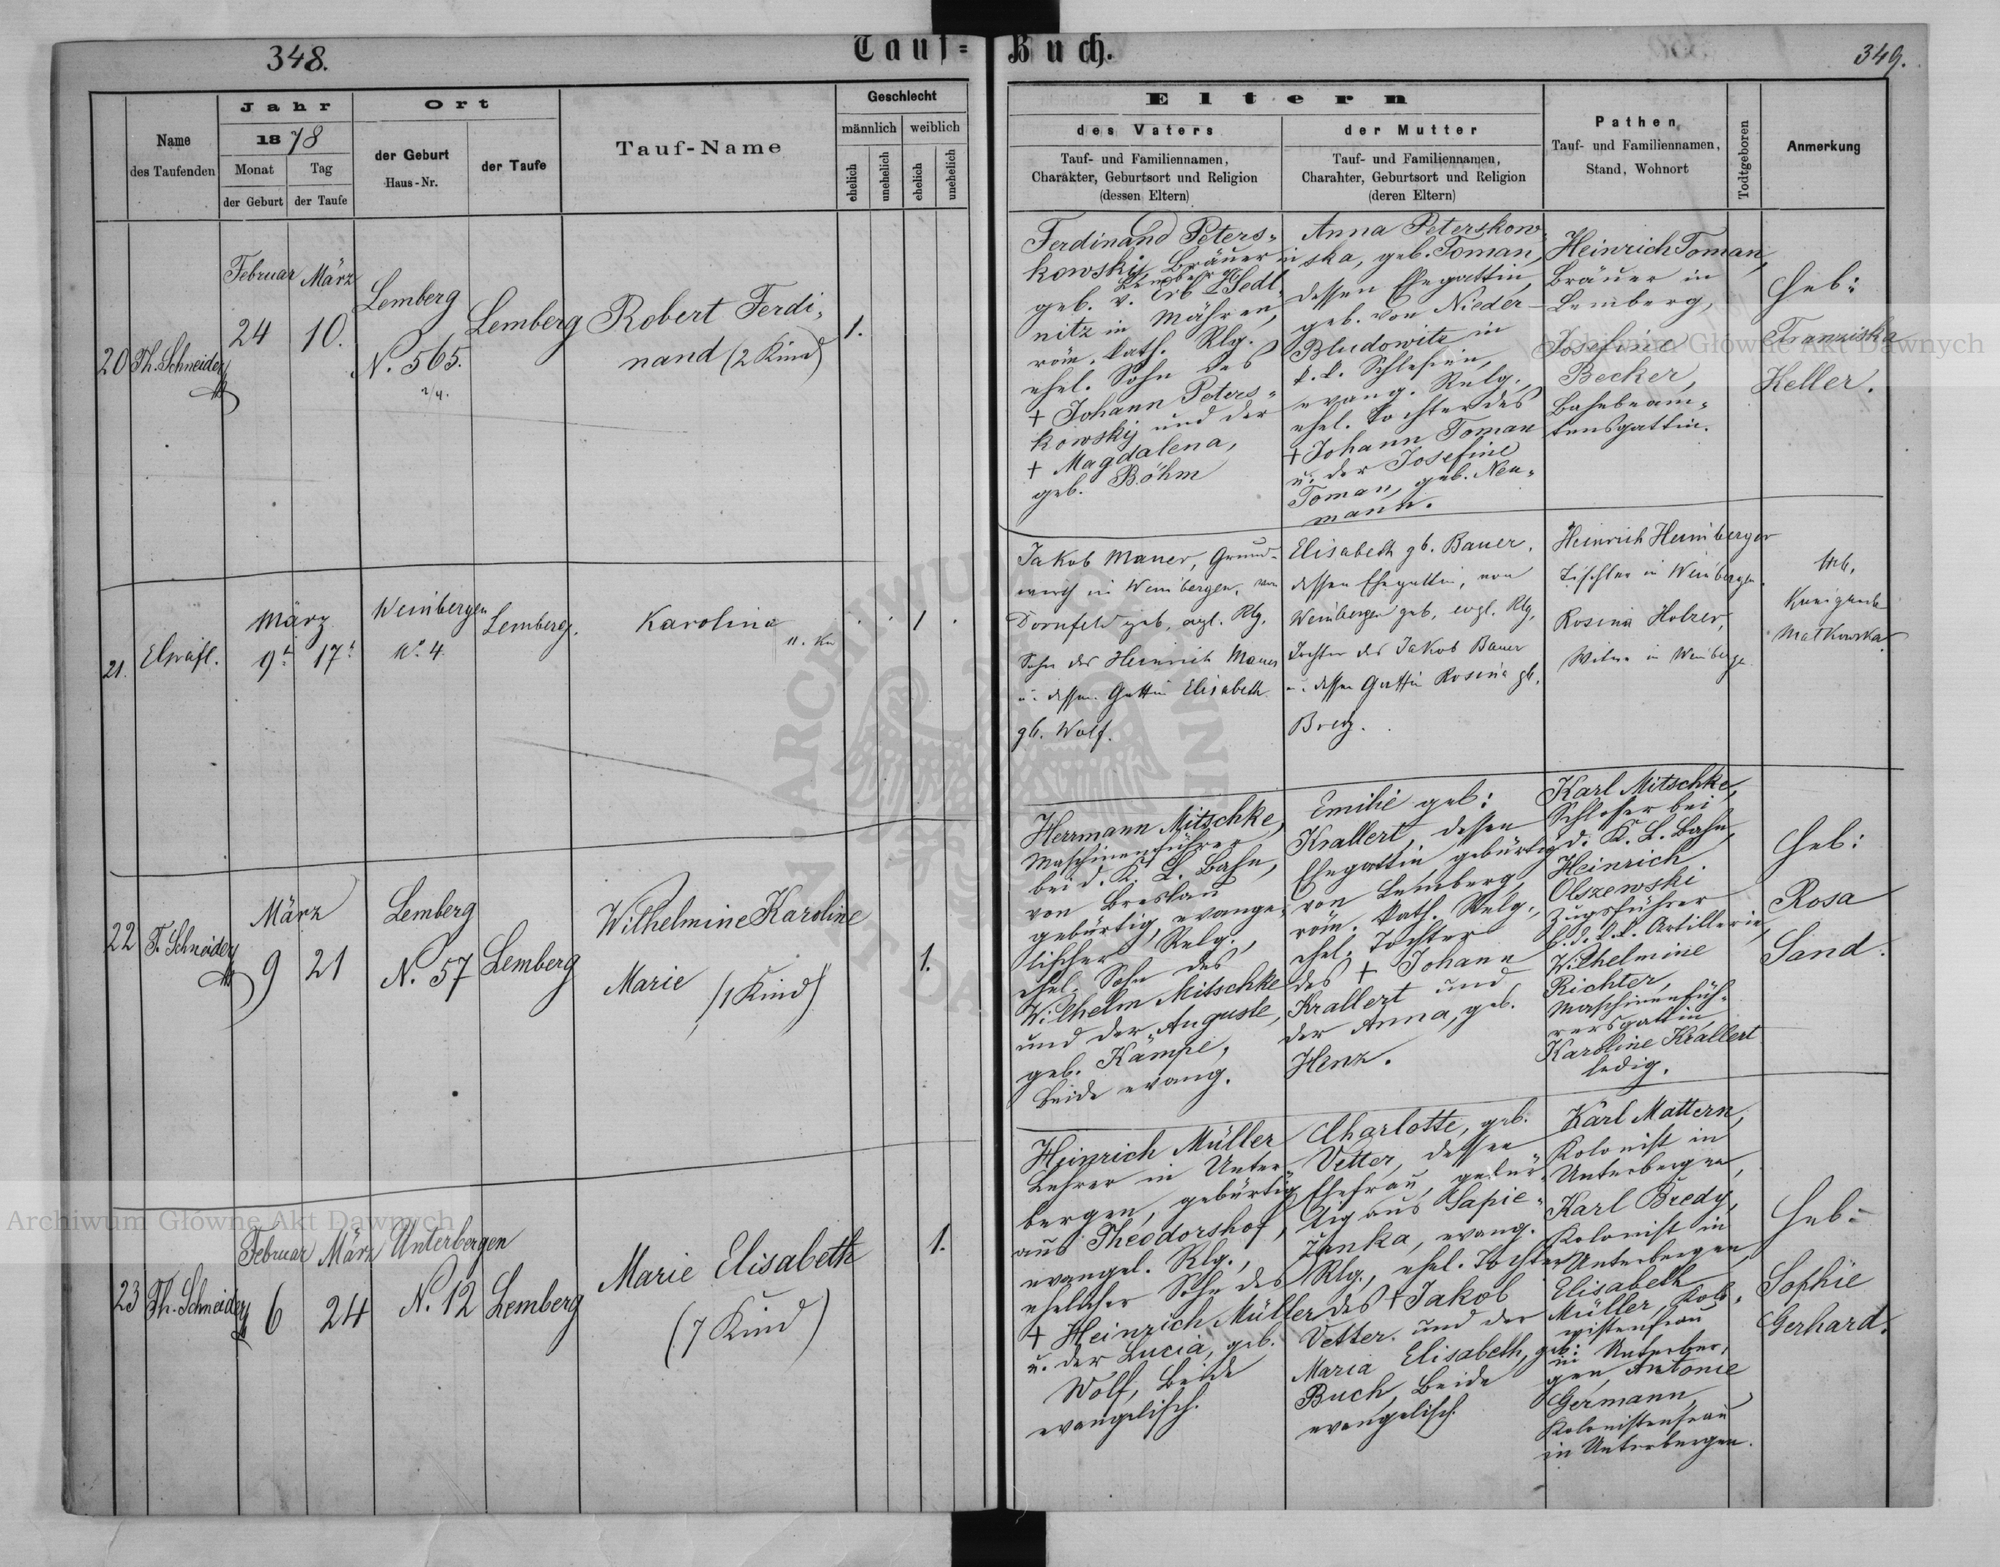 348.
Tauf=
Buch.
349.
Name
des Taufenden
Jahr
1878
Monat
Tag
der Geburt
der Taufe
Ort
der Geburt
Haus-Nr.
der Taufe
Tauf-Name
Geschlecht
männlich
weiblich
ehelich
unehelich
ehelich
unehelich
Eltern
des Vaters
Tauf- und Familiennamen,
Charakter, Geburtsort und Religion
(dessen Eltern)
der Mutter
Tauf- und Familiennamen,
Charakter, Geburtsort und Religion
(deren Eltern)
Pathen
Tauf- und Familiennamen,
Stand, Wohnort
Todtgeboren
Anmerkung
20
Th. Schneider
Februar
24
März
10.
Lemberg
N. 565.
2/4.
Lemberg
Robert Ferdi=
nand (2 Kind)
1.
Ferdinand Peters=
kowski, Bräuer in
Lemberg
geb. v. Sedl=
nitz in Mähren,
röm. kath. Rlg.
ehel. Sohn des
+ Johann Peters=
kowskij und der
+ Magdalena,
geb. Böhm
Anna Peterskow=
ska, geb. Toman,
dessen Ehegattin,
geb. von Nieder-
Bludowitz in
k. k. Schlesien,
evang. Relg.,
ehel. Tochter des
+ Johann Toman
u. der Josefine
Toman, geb. Neu=
mann.
Heinrich Toman,
Bräuer in
Lemberg,
Josefine
Becker,
Bahnbeam=
tensgattin.
Heb:
Franziska
Keller.
21.
März
9t.
17t.
Weinbergen
No. 4
Lemberg.
Karolina
11. Kn
1
Jakob Mauer, Grund-
wirth in Weinbergen, von
Dornfeld geb, evgl. Rlg.
Sohn des Heinrich Mauer
u. dessen Gattin Elisabeth
gb. Wolf.
Elisabeth gb. Bauer,
dessen Ehegattin, von
Weinbergen geb, evgl. Rlg,
Tochter des Jakob Bauer
u. dessen Gattin Rosina gb.
Heinrich Heimberger
Tischler in Weinbergen.
Rosina Holzer,
Witwe in Weinberge
Heb.
Kunigunde
Matkowska
22
T. Schneider
März
9
21
Lemberg
N. 57
Lemberg
Wilhelmine Karoline
Marie (1 Kind)
1.
Herrmann Mitschke,
Maschinenführer
bei d. K. L. Bahn,
von Breslau
gebürtig, evange=
lischer Relg.,
ehel. Sohn des
Wilhelm Mitschke
und der Auguste,
geb. Kämpe,
beide evang.
Emilie geb:
Krallert, dessen
Ehegattin, gebürtig
von Lemberg,
röm. kath. Relg.,
ehel. Tochter
des + Johann
Krallert und
der Anna, geb.
Henz.
Karl Mitschke,
Schlosser bei
d. K. L. Bahn,
Heinrich
Olszewski
Zugsführer
b. d. k. k. Artillerie,
Wilhelmine
Richter,
Maschinenfüh=
rersgattin,
Karoline Krallert
ledig.
Heb:
Rosa
Sand.
23
Th. Schneider
Februar
6
März
24
Unterbergen
N. 12
Lemberg
Marie Elisabeth
(7 Kind)
1.
Heinrich Müller
Lehrer in Unter=
bergen, gebürtig
aus Theodorshof,
evangel. Rlg.,
ehelicher Sohn des
+ Heinrich Müller
u. der Lucia, geb.
Wolf, beide
evangelisch.
Charlotte, geb.
Vetter, dessen
Ehefrau, gebür=
tig aus Sapie=
zanka, evang.
Rlg., ehel. Tochter
des + Jakob
Vetter und der
Maria Elisabeth, geb:
Buch, beide
evangelisch.
Karl Mattern,
Kolonist in
Unterbergen,
Karl Bredy,
Kolonist in
Unterbergen,
Elisabeth
Müller, Kolo=
nistenfrau
in Unterber=
gen, Antonie
Germann,
Kolonistenfrau
in Unterbergen.
Heb:
Sophie
Gerhard.
Archiwum Główne Akt Dawnych
Archiwum Główne Akt Dawnych